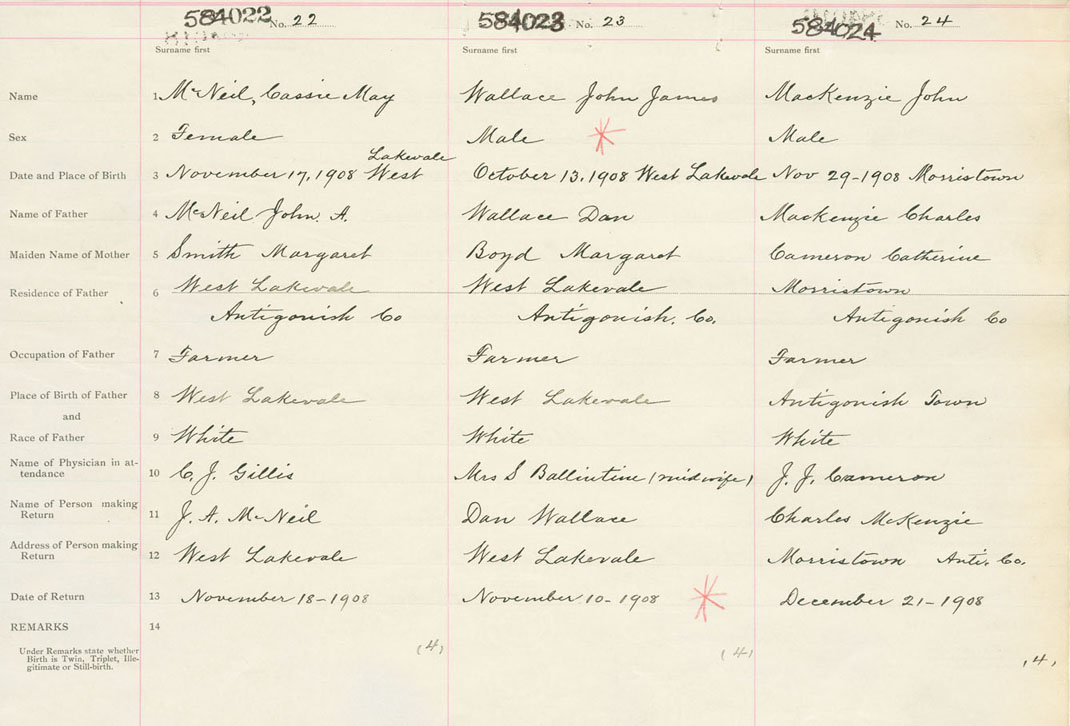 584022 No. 22 584023 No. 23 584024 No. 24
Surname first Surname first Surname first
Name 1 McNeil, Cassie May Wallace John James MacKenzie John
Sex 2 Female Male Male
Lakevale
Date and Place of Birth 3 November 17, 1908 West October 13, 1908 West Lakevale Nov 29-1908 Morristown
Name of Father 4 McNeil John. A. Wallace Dan Mackenzie Charles
Maiden Name of Mother 5 Smith Margaret Boyd Margaret Cameron Catherine
Residence of Father 6 West Lakevale West Lakevale Morristown
Antigonish Co Antigonish. Co. Antigonish Co
Occupation of Father 7 Farmer Farmer Farmer
Place of Birth of Father 8 West Lakevale West Lakevale Antigonish Town
and
Race of Father 9 White White White
Name of Physician in at-
tendance 10 C. J. Gillis Mrs S Ballintine (midwife) J. J. Cameron
Name of Person making
Return 11 J. A. McNeil Dan Wallace Charles McKenzie
Address of Person making
Return 12 West Lakevale West Lakevale Morristown Anti. Co.
Date of Return 13 November 18-1908 November 10-1908 December 21-1908
REMARKS 14
Under Remarks state whether
Birth is Twin, Triplet, Ille-
gitimate or Still-birth.
(4) (4) (4)